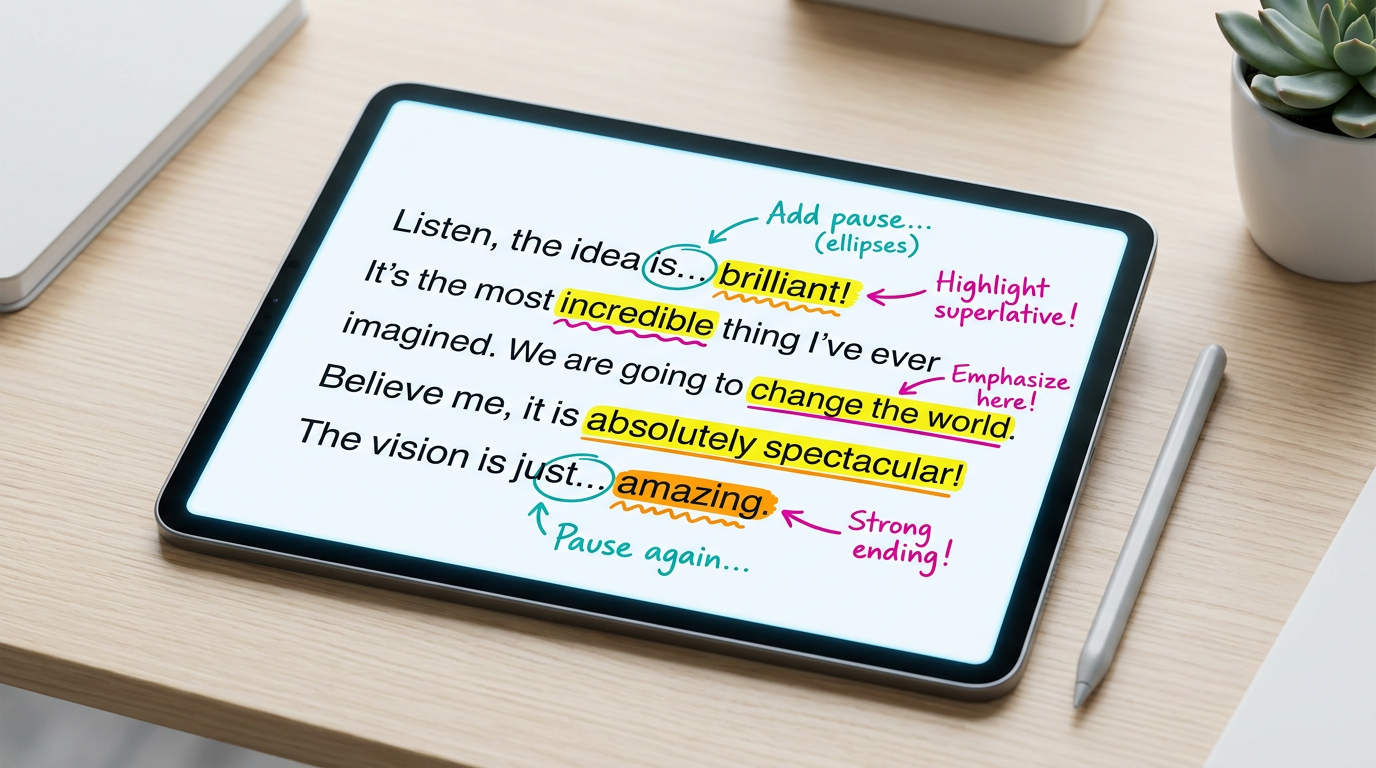 Listen, the idea is... brilliant!
It's the most incredible thing I've ever
imagined. We are going to change the world.
Believe me, it is absolutely spectacular!
The vision is just... amazing.
Add pause...
(ellipses)
Highlight
superlative!
Emphasize
here!
Strong
ending!
Pause again...